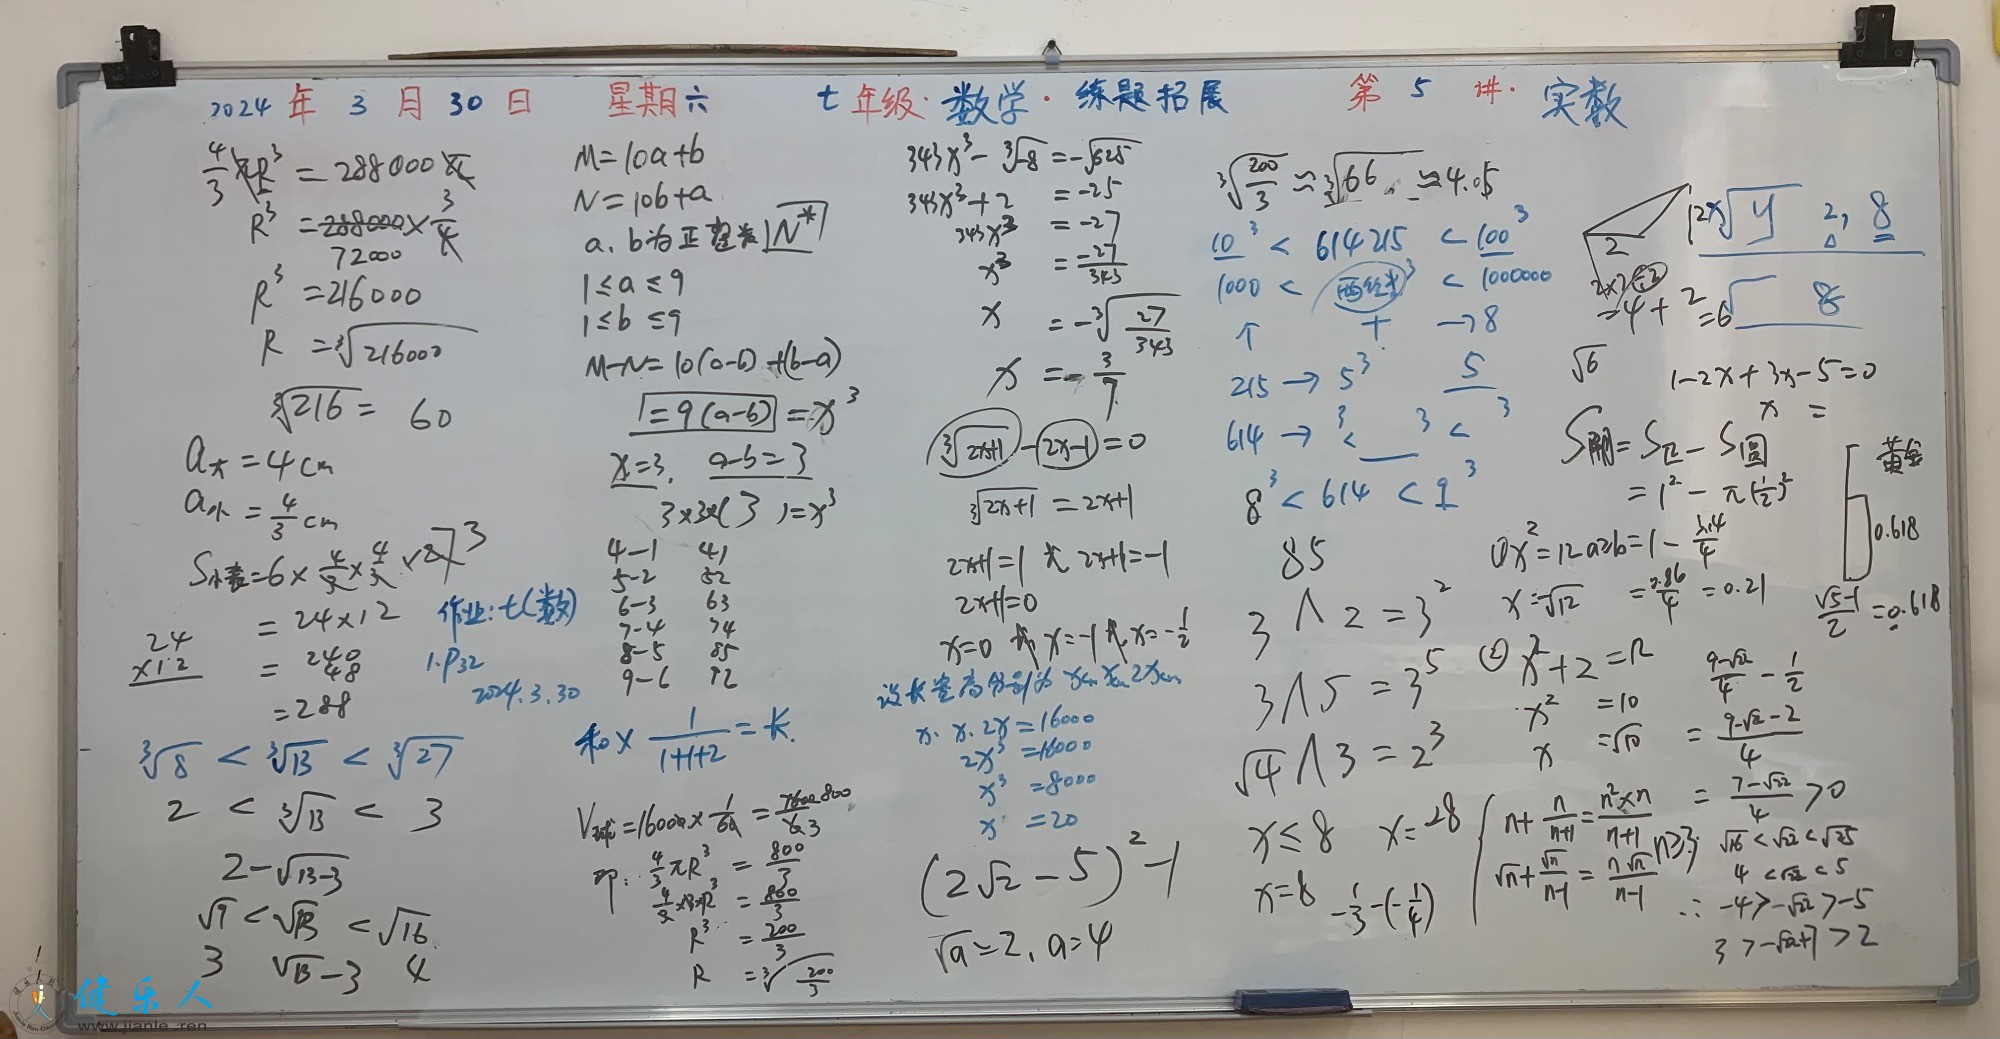 2024 年 3 月 30 日 星期六 七年级·数学·练题拓展 第 5 讲·实数
4/3 πR³ = 288000 π
R³ = 288000 × 3/4
72000
R³ = 216000
R = ³√216000
³√216 = 60
a大 = 4 cm
a小 = 4/3 cm
S小表 = 6 × 4/3 × 4/3 × 27
= 24 × 12
= 240
48
= 288
24
×12
作业: 七(数)
1. P32
2024.3.30
³√8 < ³√13 < ³√27
2 < ³√13 < 3
2 - √13-3
√9 < √13 < √16
3 √13 - 3 4
M = 10a + b
N = 10b + a
a, b为正整数 N*
1 ≤ a ≤ 9
1 ≤ b ≤ 9
M-N = 10(a-b) + (b-a)
1 = 9(a-b) = x³
x = 3, a-b = 3
3×3×( 3 ) = x³
4-1 41
5-2 52
6-3 63
7-4 74
8-5 85
9-6 92
和 × 1/(1+1+2) = K.
V球 = 16000 × 1/60 = 800/3
即: 4/3 πR³ = 800/3
4/3 ×3×R³ = 800/3
R³ = 200/3
R = ³√(200/3)
343x³ - ³√-8 = -√625
343x³ + 2 = -25
343x³ = -27
x³ = -27/343
x = -³√(27/343)
x = -3/7
³√(2x+1) - (2x-1) = 0
³√(2x+1) = 2x+1
2x+1 = 1 或 2x+1 = -1
2x+1 = 0
x = 0 或 x = -1 或 x = -1/2
设长宽高分别为 xcm xcm 2xcm
x · x · 2x = 16000
2x³ = 16000
x³ = 8000
x = 20
(2√2 - 5)² - 1
√a = 2, a = 4
³√(200/3) ≈ ³√66. ≈ 4.05
10³ < 614215 < 100³
1000 < 两位数³ < 1000000
↑ + → 8
215 → 5³ 5
614 → ³ < __³ < ³
8³ < 614 < 9³
85
3 Λ 2 = 3²
3 Λ 5 = 3⁵
√4 Λ 3 = 2³
x ≤ 8 x = -28
x = 8 -1/3 - (-1/4)
2
√y 2, 8
√ 8
= 4 + 2 = 6
√6
1 - 2x + 3x - 5 = 0
x =
S阴 = S正 - S圆
= 1² - π(1/2)²
= 1 - 3.14/4
= 0.86/4 = 0.21
黄金
0.618
(√5-1)/2 = 0.618
① x² = 12
x = √12
② x² + 2 = 12
x² = 10
x = √10
n + n/(n+1) = n²×n/(n+1)
√n + √n/(n-1) = n√n/(n-1) n≥3;
(9-√22)/4 - 1/2
= (9-√22-2)/4
= (7-√22)/4 > 0
√16 < √22 < √25
4 < √22 < 5
∴ -4 > -√22 > -5
3 > -√22+7 > 2
健乐人
www.jianle.ren